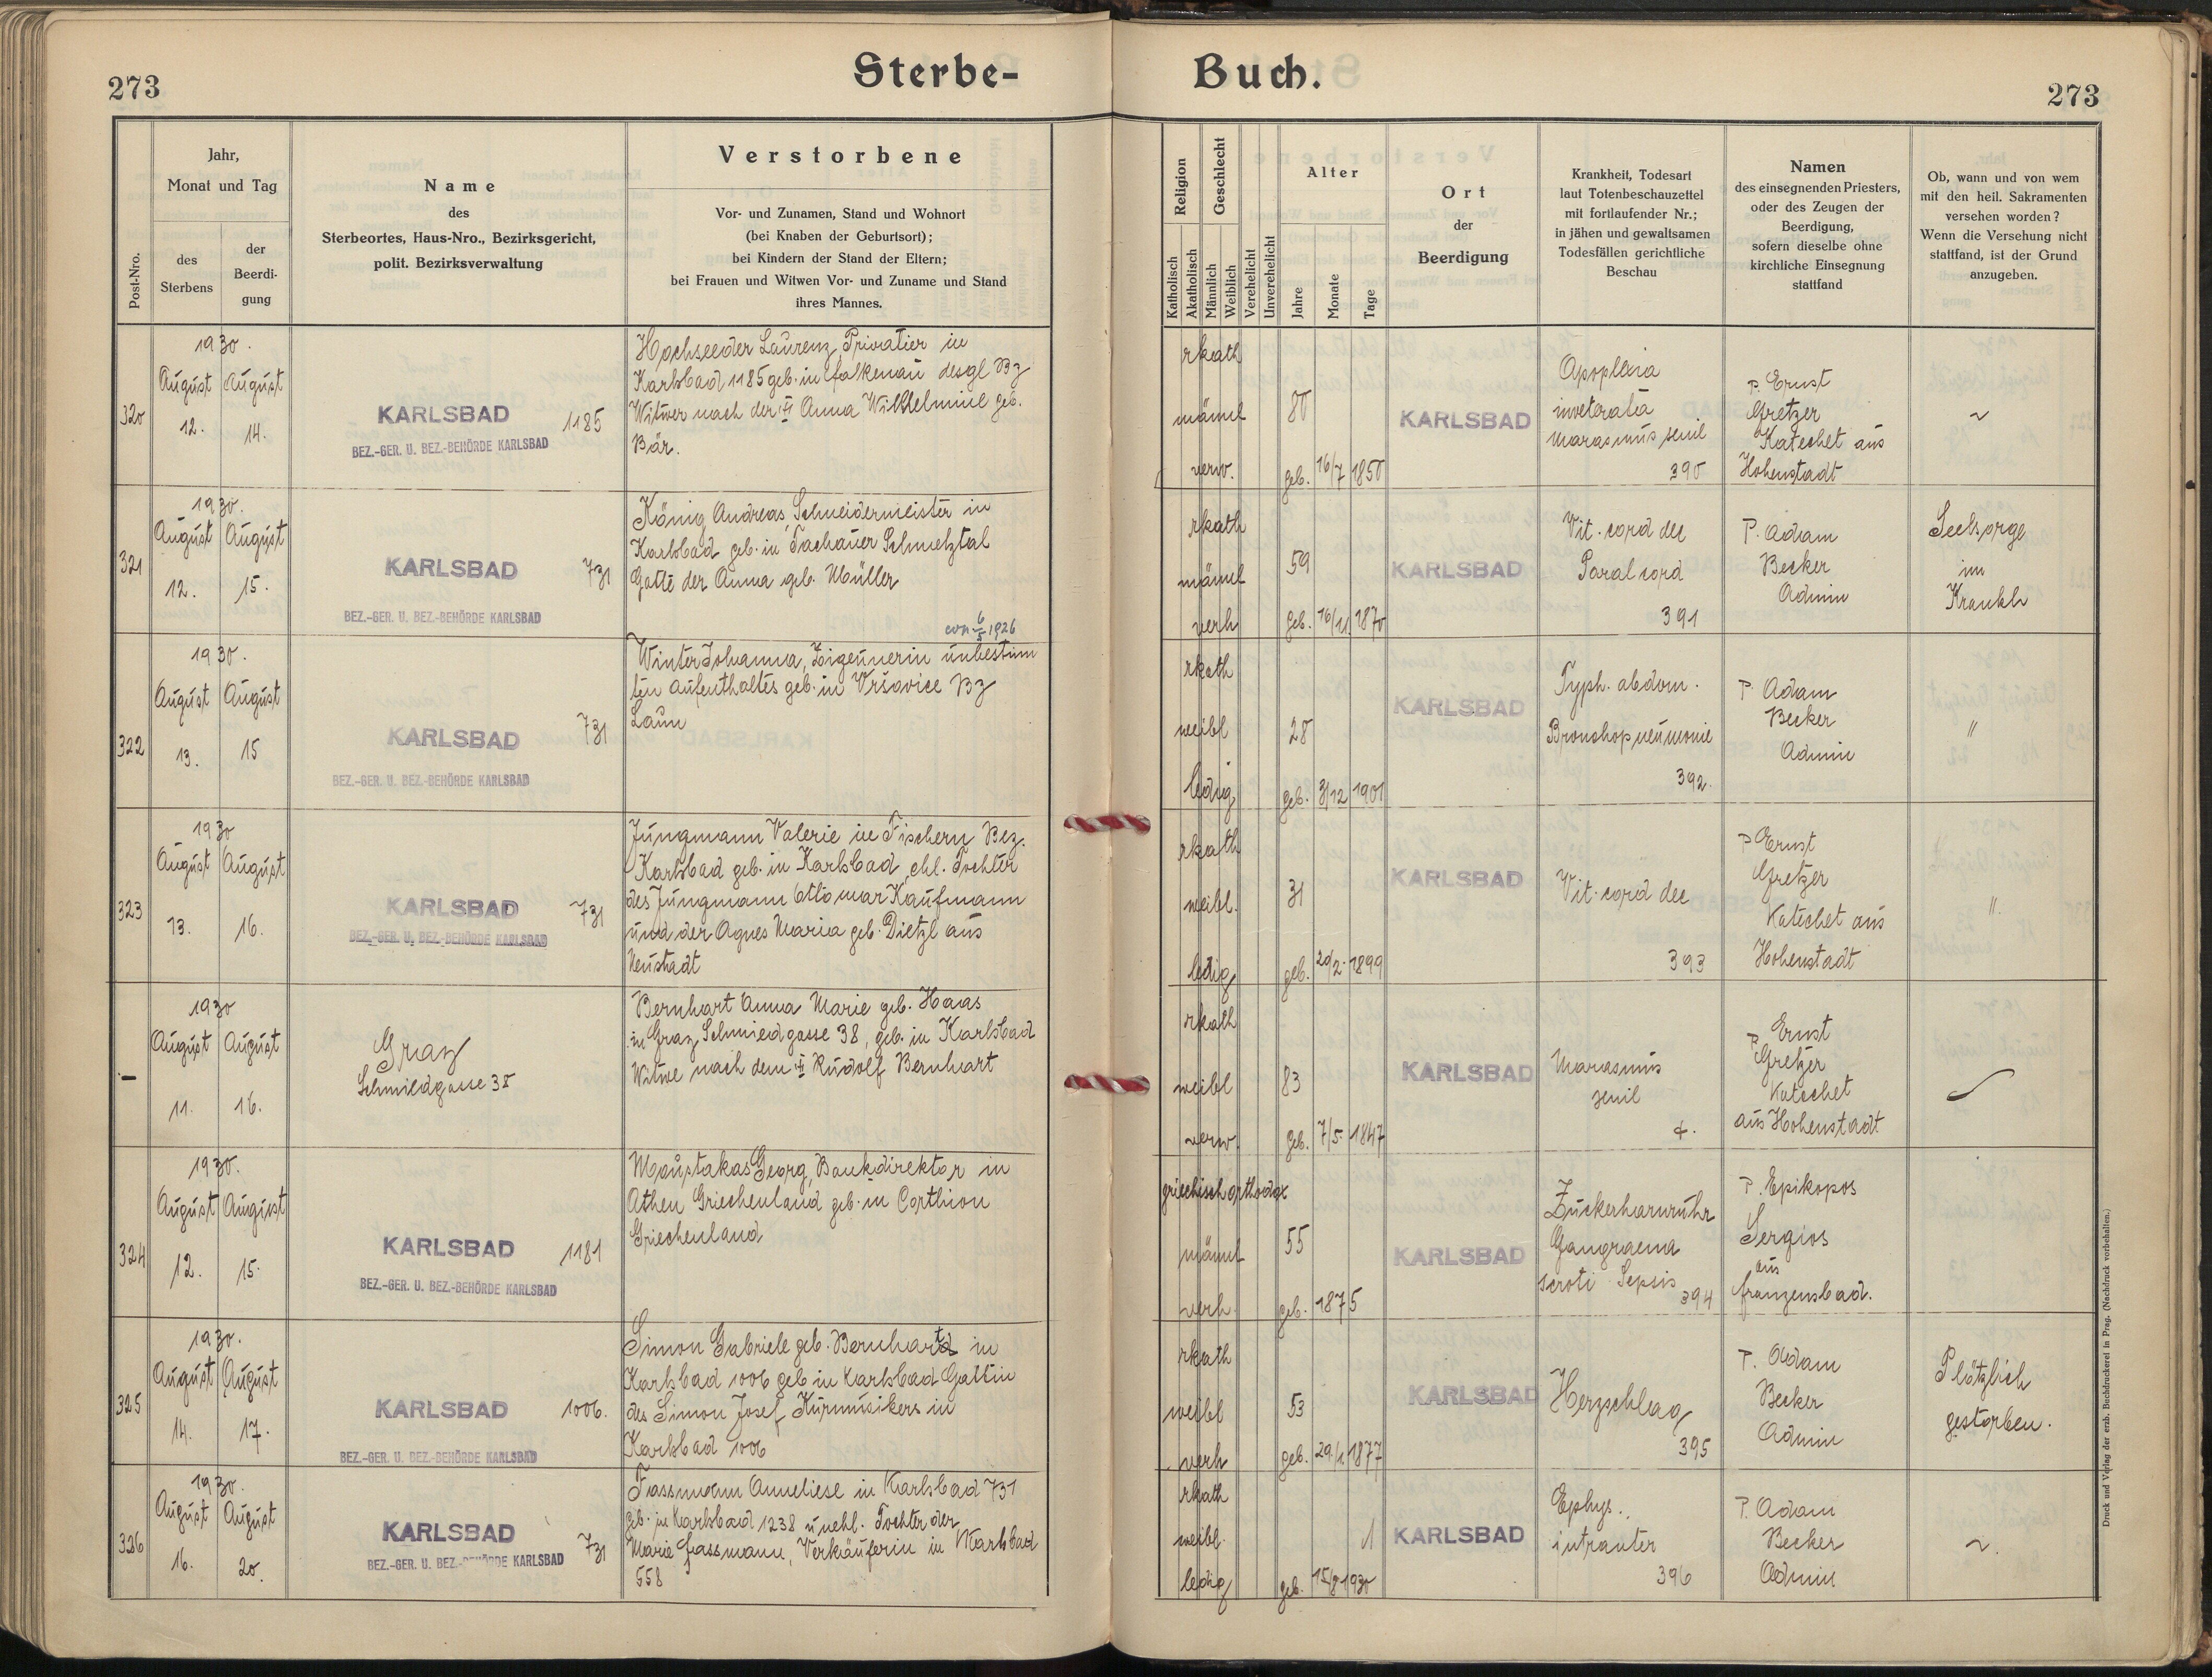 273
Sterbe-
Buch.
273
Post-Nro.
Jahr,
Monat und Tag
des
Sterbens
der
Beerdi-
gung
Name
des
Sterbeortes, Haus-Nro., Bezirksgericht,
polit. Bezirksverwaltung
Verstorbene
Vor- und Zunamen, Stand und Wohnort
(bei Knaben der Geburtsort);
bei Kindern der Stand der Eltern;
bei Frauen und Witwen Vor- und Zuname und Stand
ihres Mannes.
Religion
Geschlecht
Katholisch
Akatholisch
Männlich
Weiblich
Verehelicht
Unverehelicht
Alter
Jahre
Monate
Tage
Ort
der
Beerdigung
Krankheit, Todesart
laut Totenbeschauzettel
mit fortlaufender Nr.;
in jähen und gewaltsamen
Todesfällen gerichtliche
Beschau
Namen
des einsegnenden Priesters,
oder des Zeugen der
Beerdigung,
sofern dieselbe ohne
kirchliche Einsegnung
stattfand
Ob, wann und von wem
mit den heil. Sakramenten
versehen worden?
Wenn die Versehung nicht
stattfand, ist der Grund
anzugeben.
320
1930.
August August
12. 14.
KARLSBAD 1185
BEZ.-GER. U. BEZ.-BEHÖRDE KARLSBAD
Hochseeder Laurenz, Privatier in
Karlsbad 1185 geb. in Falkenau desgl Bz
Witwer nach der Anna Wilhelmine geb.
Bär.
rkath
männl
verw.
80
geb. 16/7 1850
KARLSBAD
Apoplexia
invetrata
marasmus senil
390
P. Ernst
Gretzer
Katechet aus
Hohenstadt
~
321
1930.
August August
12. 15.
KARLSBAD 731
BEZ.-GER. U. BEZ.-BEHÖRDE KARLSBAD
König Andreas, Schneidermeister in
Karlsbad geb. in Tachauer Schmelztal
Gatte der Anna geb. Müller
rkath
männl
verh
59
geb. 16/11 1870
KARLSBAD
Vit. cord dec
Paral cord
391
P. Adam
Becker
Admin
Seelsorge
im
Krankh
322
1930.
August August
13. 15
KARLSBAD 731
BEZ.-GER. U. BEZ.-BEHÖRDE KARLSBAD
1926
Winter Johanna, Zigeunerin unbestim
ten Aufenthaltes geb. in Vršovice Bz
Laun
rkath
weibl
ledig
28
geb. 3/12 1901
KARLSBAD
Typh. abdom.
Bronchopneumonie
392.
P. Adam
Becker
Admin
"
323
1930
August August
13. 16.
KARLSBAD 731
BEZ.-GER. U. BEZ.-BEHÖRDE KARLSBAD
Jungmann Valerie in Fischern Bez.
Karlsbad geb. in Karlsbad, ehl. Tochter
des Jungmann Ottomar Kaufmann
und der Agnes Maria geb. Dietzl aus
Neustadt
rkath
weibl.
ledig
31
geb. 20/2. 1899
KARLSBAD
Vit. cord dec
393
P Ernst
Gretzer
Katechet aus
Hohenstadt
"
–
1930
August August
11. 16.
Graz
Schmiedgasse 38
Bernhart Anna Marie geb. Haas
in Graz Schmiedgasse 38, geb. in Karlsbad
Witwe nach dem Rudolf Bernhart
rkath
weibl
verw.
83
geb. 7/5. 1847
KARLSBAD
Marasmus
senil
P Ernst
Gretzer
Katechet
aus Hohenstadt
324
1930.
August August
12. 15.
KARLSBAD 1181
BEZ.-GER. U. BEZ.-BEHÖRDE KARLSBAD
Moustakas Georg, Bankdirektor in
Athen Griechenland geb. in Corthion
Griechenland
griechisch orthodox
männl
verh.
55
geb. 1875
KARLSBAD
Zuckerharnruhr
Gangraena
scroti Sepsis
394
P. Epikopos
Sergios
aus
Franzensbad.
325
1930.
August August
14. 17.
KARLSBAD 1006.
BEZ.-GER. U. BEZ.-BEHÖRDE KARLSBAD
Simon Gabriele geb. Bernhart in
Karlsbad 1006 geb in Karlsbad Gattin
des Simon Josef Kurmusikers in
Karlsbad 1006
rkath
weibl
verh
53
geb. 29/1. 1877
KARLSBAD
Herzschlag
395
P. Adam
Becker
Admin
Plötzlich
gestorben.
326
1930.
August August
16. 20.
KARLSBAD 731
BEZ.-GER. U. BEZ.-BEHÖRDE KARLSBAD
Fassmann Anneliese in Karlsbad 731
geb. in Karlsbad 1238 unehl. Tochter der
Marie Fassmann, Verkäuferin in Karlsbad
558
rkath
weibl.
ledig
1
geb. 15/8 1930
KARLSBAD
Ephys.
intrauter
396
P. Adam
Becker
Admin
~.
Druck und Verlag der erzb. Buchdruckerei in Prag. (Nachdruck vorbehalten.)